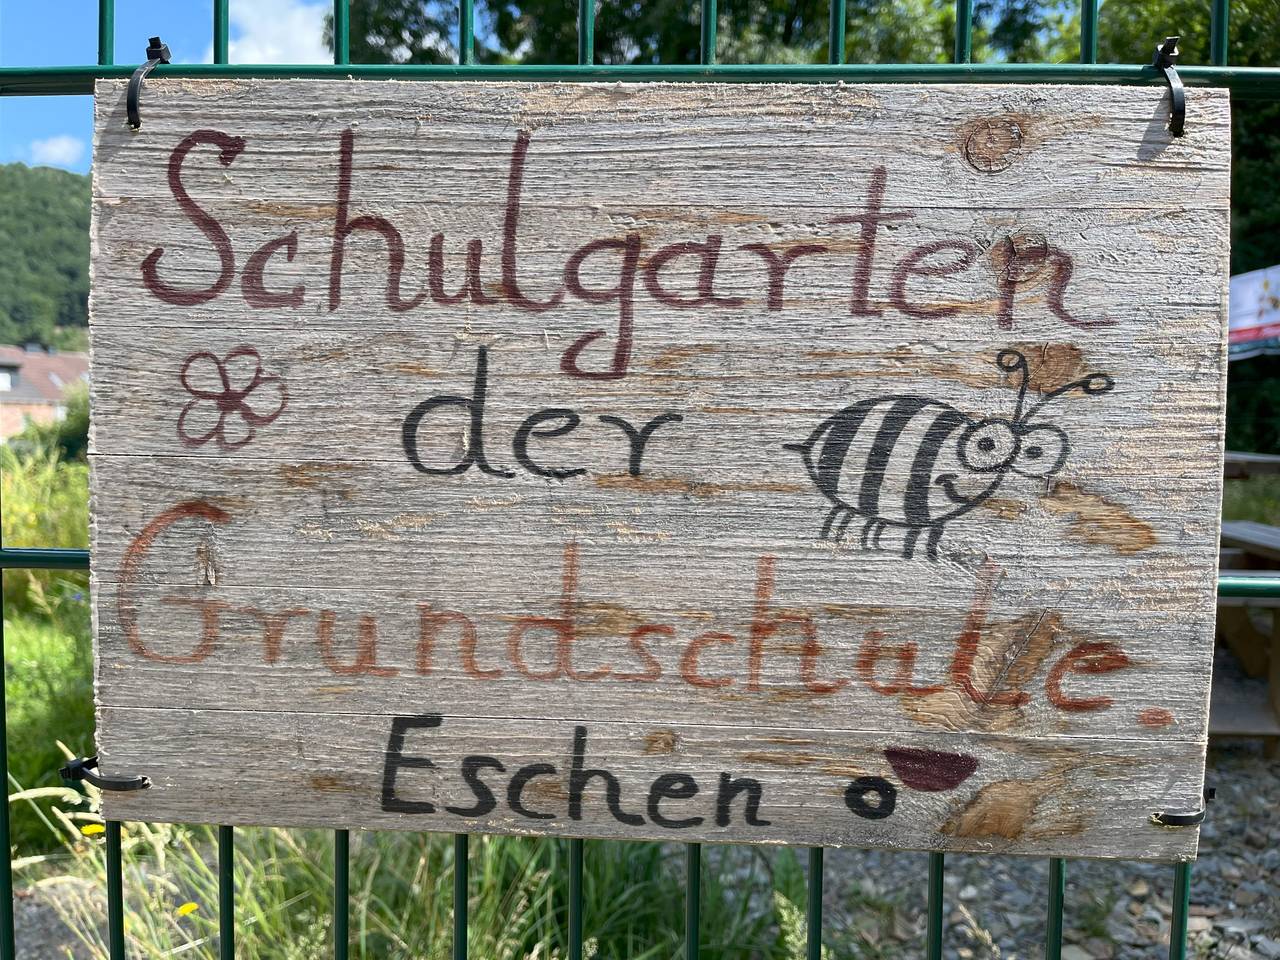 Schulgarten
der
Grundschule.
Eschen